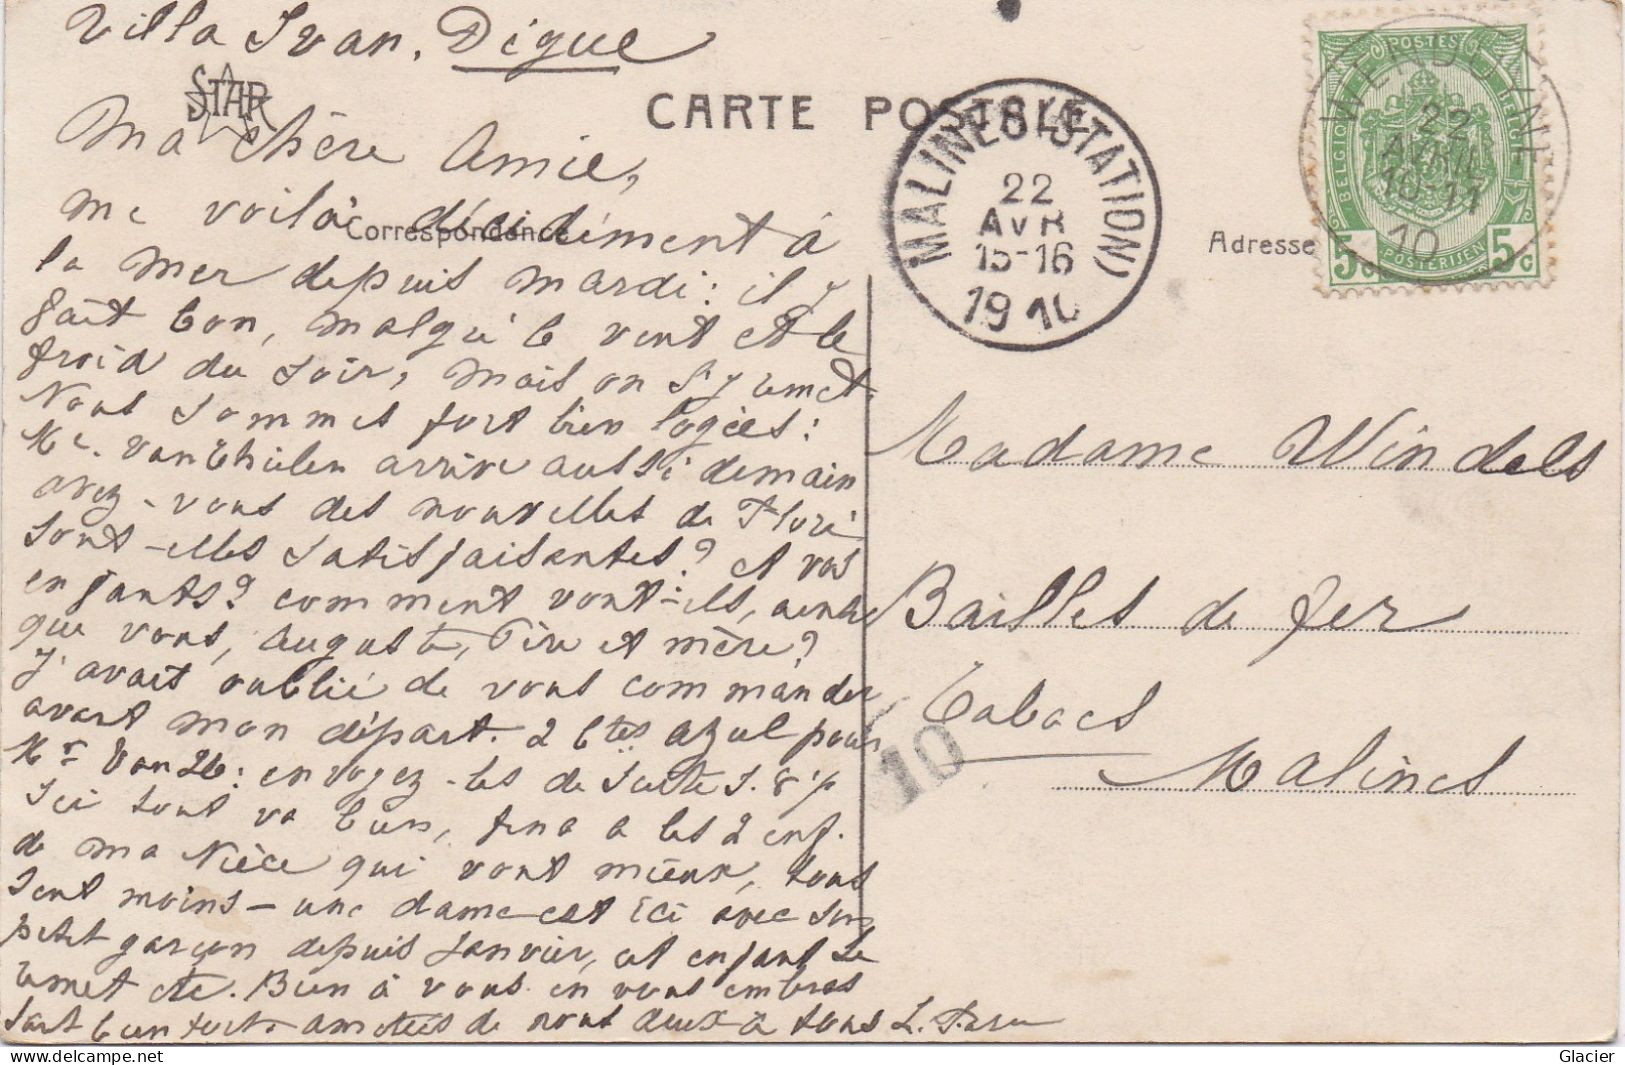 Villa Ivan, Digue
STAR
CARTE POSTALE
Correspondance
Ma chère Amie,
me voilà décidément à
la mer depuis mardi : il y
fait bon, malgré le vent et le
froid du soir, mais on s'y remet.
Nous sommes fort bien logées :
Me. Van Thielen arrive aussi demain
avez-vous des nouvelles de Flore
sont-elles satisfaisantes? et vos
enfants? comment vont-ils, ainsi
que vous, Auguste, Père et mère?
J'avait oublié de vous commander
avant mon départ. 2 btes azul pour
Mr Van : envoyez-les de suite S. v. p
Ici tout va bien, a les 2 enf.
de ma Nièce qui vont mieux,
sent moins – une dame est ici avec son
petit garçon depuis Janvier, cet enfant se
remet etc. Bien à vous en vous embras
sant bien fort. amitiés de nous deux à tous L.
MALINES (STATION)
22
AVR
15-16
1910
Adresse
BELGIQUE
POSTES
POSTERIJEN
5c
5c
WENDUYNE
22
AVRIL
10-11
10
Madame Windels
Bailles de fer
Tabacs
Malines
10
Glacier